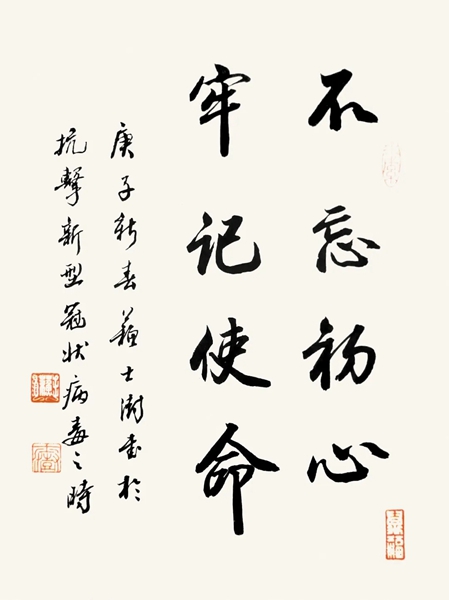 不忘初心
牢记使命
庚子新春苏士澍书于
抗擊新型冠状病毒之時